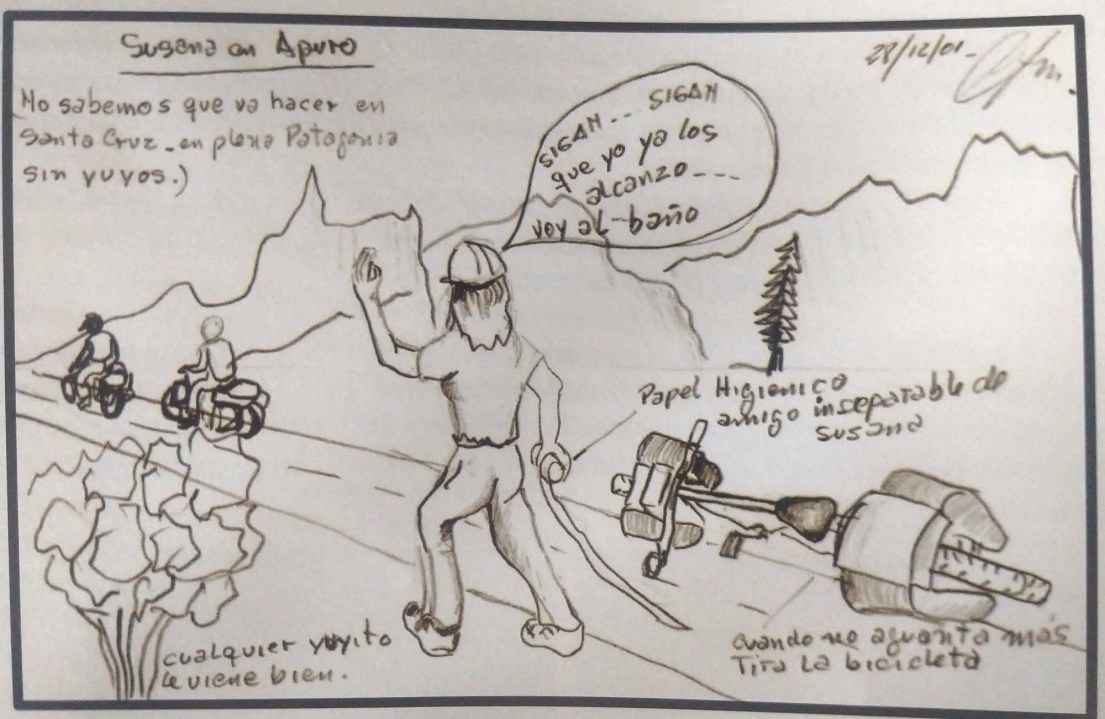 Susana en Apuro
28/12/01-
No sabemos que va hacer en
Santa Cruz - en plena Patagonia
sin yuyos.)
SIGAN
SIGAN ----
que yo ya los
alcanzo ----
voy al-baño
Papel Higienico
amigo inseparable de
susana
cualquier yuyito
le viene bien.
cuando no aguanta más
Tira La bicicleta